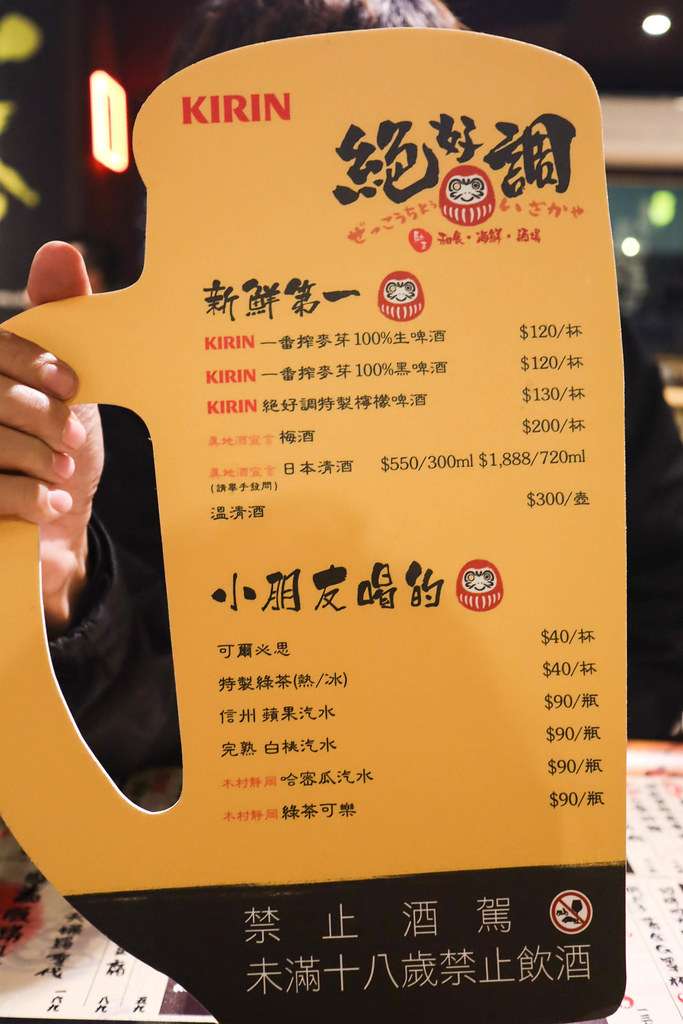 KIRIN
絕好調
ぜっこうちょう いざかや
和食・海鮮・酒場
新鮮第一
KIRIN 一番搾麥芽100%生啤酒 $120/杯
KIRIN 一番搾麥芽100%黑啤酒 $120/杯
KIRIN 絕好調特製檸檬啤酒 $130/杯
奧地酒宣言 梅酒 $200/杯
奧地酒宣言 日本清酒 $550/300ml $1,888/720ml
(請舉手發問)
溫清酒 $300/壺
小朋友喝的
可爾必思 $40/杯
特製綠茶(熱/冰) $40/杯
信州 蘋果汽水 $90/瓶
完熟 白桃汽水 $90/瓶
木村靜岡 哈密瓜汽水 $90/瓶
木村靜岡 綠茶可樂 $90/瓶
禁止酒駕
未滿十八歲禁止飲酒